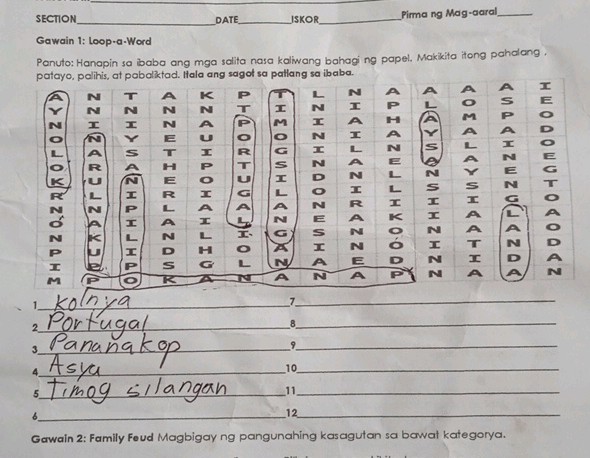 SECTION DATE ISKOR Pirma ng Mag-aaral
Gawain 1: Loop-a-Word
Panuto: Hanapin sa ibaba ang mga salita nasa kaliwang bahagi ng papel. Makikita itong pahalang ,
patayo, palihis, at pabaliktad. Itala ang sagot sa patlang sa ibaba.
A N T A K P T L N A A A A I
Y N N N N T I N I P L O S E
N I I N A P M I A H A M P O
O N Y E U O O N I A Y A A D
L A S T I R G I L N S L I O
O R A H P T S N A E A A N E
K U N E O U I D N L N Y E G
R L I R I G L O I L S S N T
N N P L A A A N R I I I G O
Ó A I A I L N E A K I A L A
N K L N L I G S N O N A A O
P U I D H O A I N Ó N T N D
I P P S G L N A E D I I D A
M P O K A N A N A P N A A N
1 Kolnya 7
2 Portugal 8
3 Pananakop 9
4 Asya 10
5 Timog silangan 11
6 12
Gawain 2: Family Feud Magbigay ng pangunahing kasagutan sa bawat kategorya.